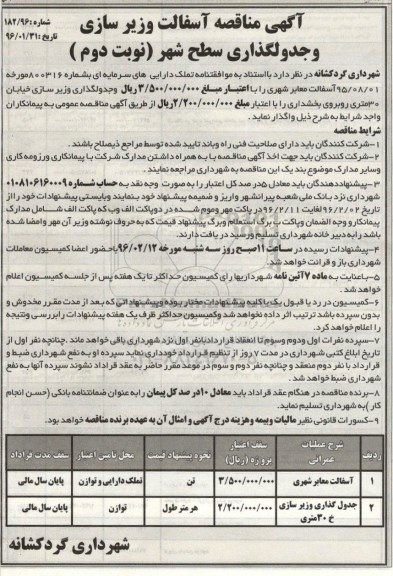 آگهی مناقصه آسفالت وزیر سازی
وجدولگذاری سطح شهر (نوبت دوم )
شماره :۱۸۲/۹۶
تاریخ :۹۶/۰۱/۳۱
شهرداری گردکشانه در نظر دارد بااستناد به موافقتنامه تملک دارایی های سرمایه ای بشماره ۸۰۰۳۱۶مورخه
۹۵/۰۸/۰۱ آسفالت معابر شهری را با اعتبـار مبلغ ۳/۵۰۰/۰۰۰/۰۰۰ ریال وجدولگذاری وزیر سازی خیابان
۳۰متری روبروی بخشداری را با اعتبار مبلغ ۲/۲۰۰/۰۰۰/۰۰۰ریال از طریق آگهی مناقصه عمومی به پیمانکاران
واجد شرایط به شرح ذیل واگذار نماید .
شرایط مناقصه
۱-شرکت کنندگان باید دارای صلاحیت فنی راه وباند تایید شده توسط مراجع ذیصلاح باشند .
۲-شرکت کنندگان باید جهت اخذ آگهی مناقصه با به همراه داشتن مدارک شرکت با پیمانکاری ورزومه کاری
وسایر مدارک موضوع بند یک این مناقصه به شهرداری مراجعه نمایند .
۳-پیشنهاددهندگان باید معادل ۵در صد کل اعتبار را به صورت وجه نقد به حساب شماره ۰۱۰۸۱۰۶۱۶۰۰۰۹
شهرداری نزد بانک ملی شعبه پیرانشهر واریز و ضمیمه پیشنهاد خود بنمایند وبایستی پیشنهادات خود را از
تاریخ ۹۶/۲/۰۲ لغایت ۹۶/۲/۱۱در پاکت مهر وموم شده در دوپاکت الف وب که پاکت الف شـامل مدارک
پیمانکار وجه الضمان وپاکت ب برگ استعلام وبرگ پیشنهاد قیمت که به حروف نوشته وزیر آن مهر وامضا شده
باشد رابه دبیر خانه شهرداری تسلیم ورسید در یافت دارند .
۴-پیشنهادات رسیده در ساعت ۱۱صبح روز سه شنبه مورخه ۹۶/۰۲/۱۲ باحضور اعضا کمیسیون معاملات
شهرداری باز و قرائت خواهد شد .
۵-باعنایت به ماده ۷آئین نامه شهرداریها رای کمیسیون حداکثر تا یک هفته پس از جلسه کمیسیون اعلام
خواهد شد .
۶-کمیسیون در رد یا قبول یک یا کلیه پیشنهادات مختار بوده وپیشنهاداتی که بعد از مدت مقرر مخدوش و
بدون سپرده باشد ترتیب اثر داده نخواهد شدوکمیسیون حداکثر ظرف یک هفته پیشنهادات را بررسی ونتیجه
را اعلام خواهد کرد.
۷-سپرده نفرات اول ودوم وسوم تا انعقاد قراردادبانفر اول نزد شهرداری باقی خواهد ماند .چنانچه نفر اول از
تاریخ ابلاغ کتبی شهرداری در مدت ۷ روز از تنظیم قرارداد خودداری نماید سپرده او به نفع شهرداری ضبط و
قرارداد با نفر دوم منعقد و چنانچه نفر دوم و سوم در موعد مقرر حاضر به عقد قرارداد نشوند سپرده آنها به نفع
شهرداری ضبط خواهد شد .
۸-برنده مناقصه در هنگام عقد قراداد باید معادل ۱۰در صد کل پیمان را به عنوان ضمانتنامه بانکی (حسن انجام
کار )به شهرداری تسلیم نماید.
۹-کسورات قانونی نظیر مالیات وبیمه وهزینه درج آگهی و امثال آن به عهده برنده مناقصه خواهد بود.
ردیف شرح عملیات عمرانی سقف اعتبار پروژه (ریال) نحوه پیشنهاد قیمت محل تامین اعتبار سقف مدت قراداد
۱ آسفالت معابر شهری ۳/۵۰۰/۰۰۰/۰۰۰ تن تملک دارایی و توازن پایان سال مالی
۲ جدول گذاری وزیر سازی خ ۳۰متری ۲/۲۰۰/۰۰۰/۰۰۰ هر متر طول توازن پایان سال مالی
شهرداری گردکشانه